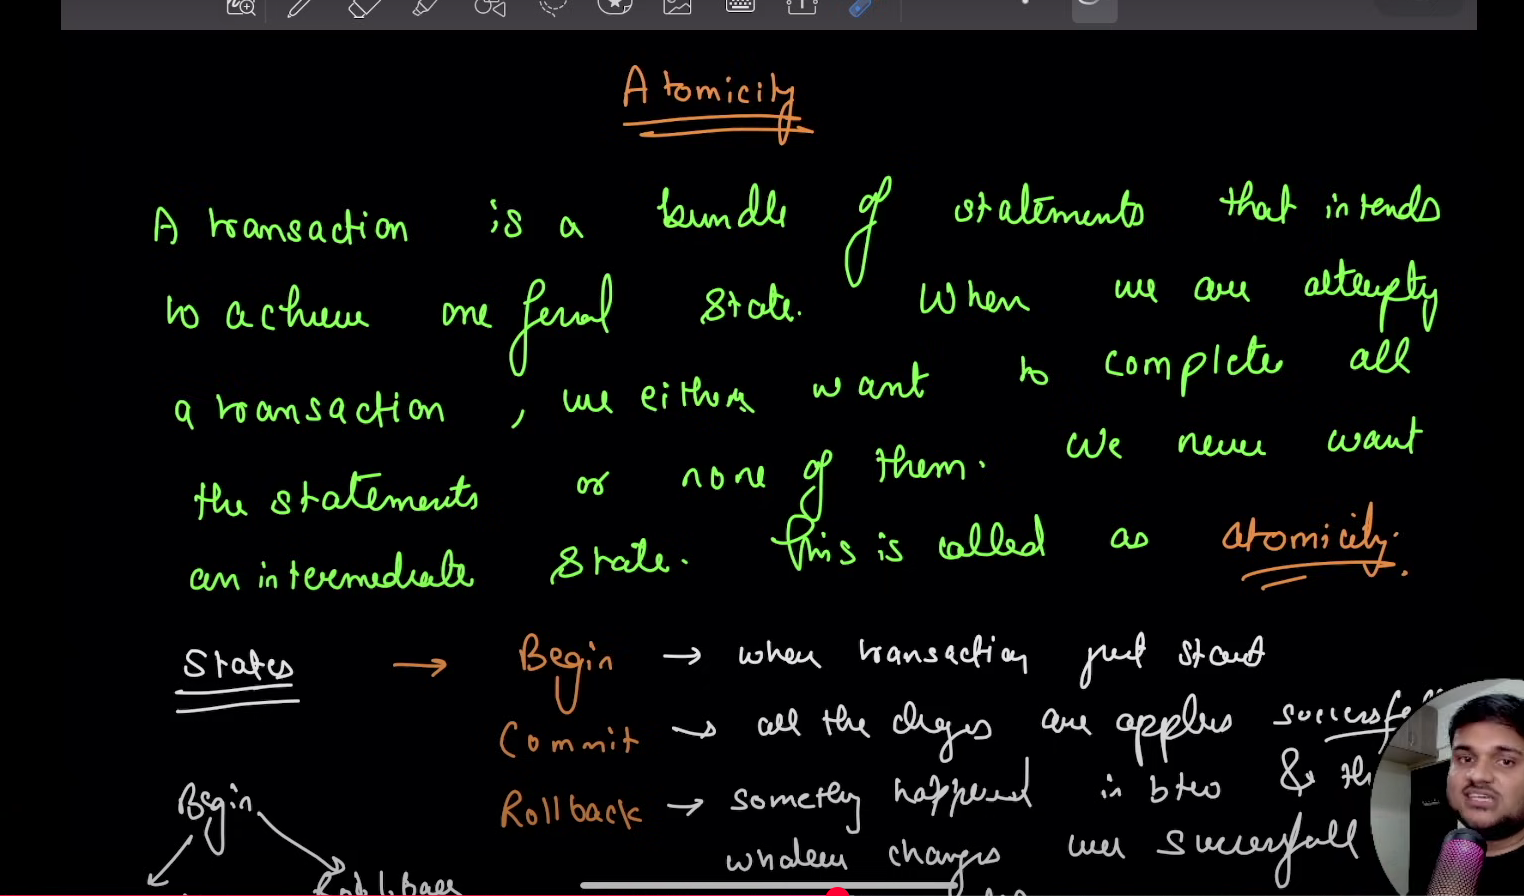 Atomicity
A transaction is a bundle of statements that intends
to achieve one final state. When we are attempty
a transaction, we either want to complete all
the statements or none of them. We never want
an intermediate state. This is called as atomicity.
States → Begin → when transaction just start
Commit → all the changes are applies
Rollback → something happened in btw &
whatever changes were successfull
Begin
Rollback